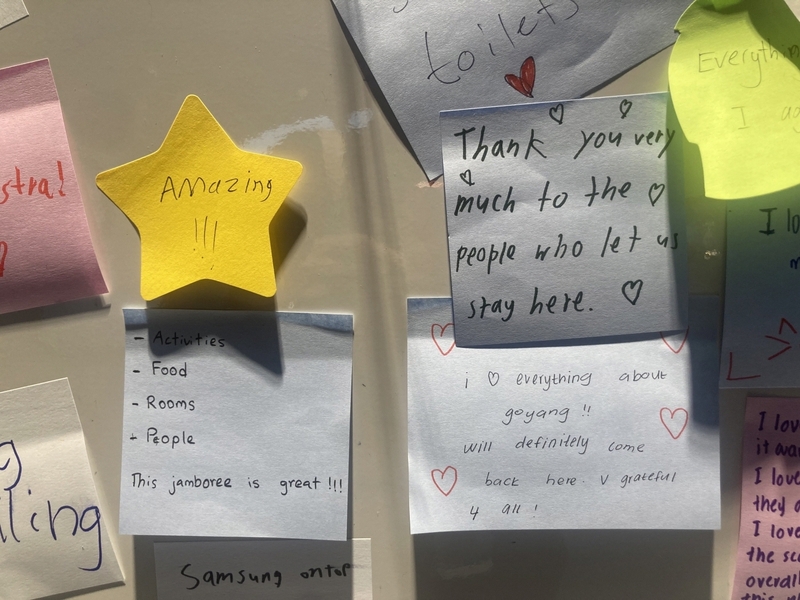 toilets
Everything
I
stra!
Amazing
!!!
Thank you very
much to the
people who let us
stay here.
I lo
- Activities
- Food
- Rooms
- People
This jamboree is great!!!
i ♡ everything about
goyang !!
will definitely come
back here. v grateful
4 all !
ling
Samsung ontop
I lov
it wa
I love
they a
I love
the sc
overall